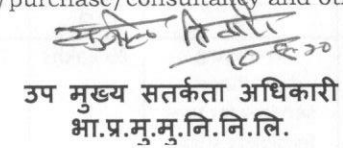 /purchase/consultancy and ot
सुनील तिवारी
उप मुख्य सतर्कता अधिकारी
भा.प्र.मु.मु.नि.नि.लि.